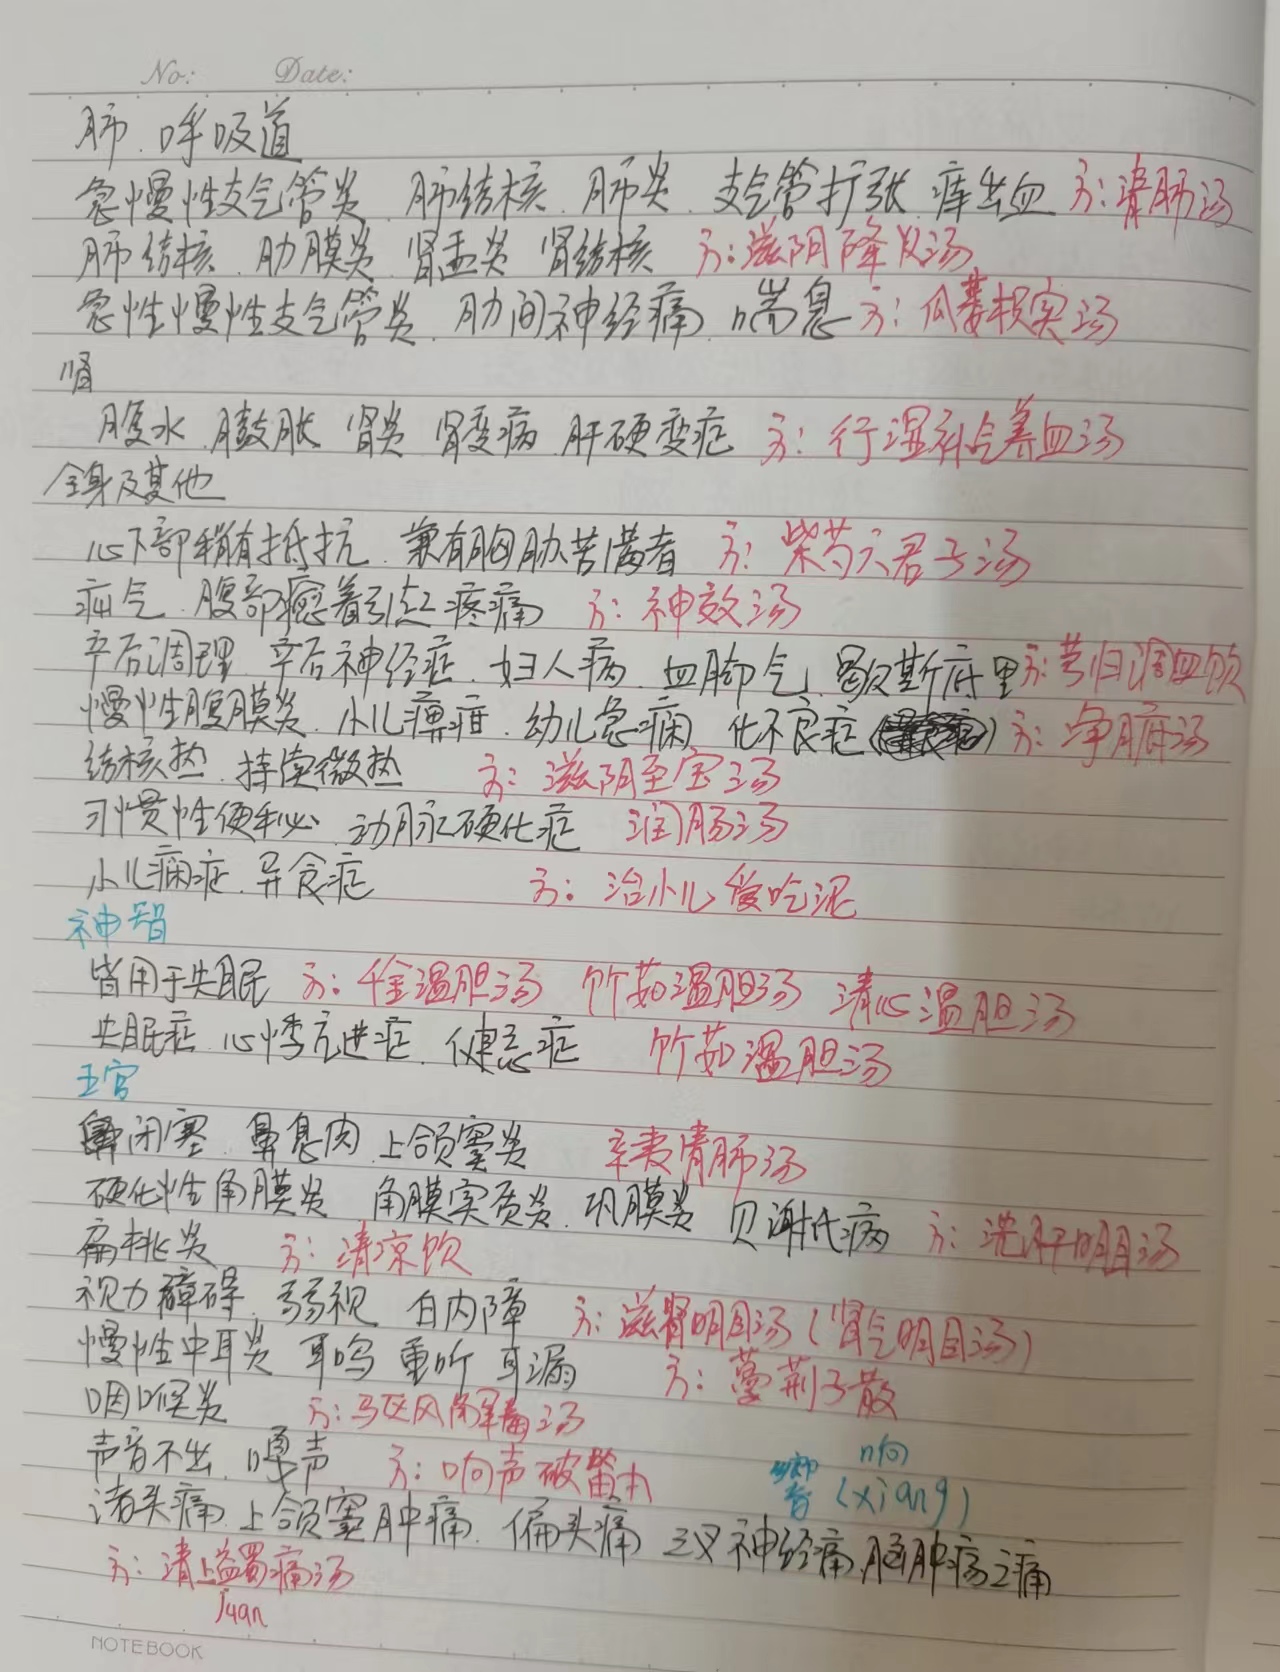 No: Date:
肺、呼吸道
急慢性支气管炎、肺结核、肺炎、支气管扩张、痒出血 方:清肺汤
肺结核、肋膜炎、肾盂炎 肾结核 方:滋阴降火汤
急性慢性支气管炎、肋间神经痛、喘息 方:瓜蒌枳实汤
肾
腹水、臌胀 肾炎 肾变病、肝硬变症 方:行湿补气养血汤
全身及其他
心下部稍有抵抗、兼有胸胁苦满者 方:柴芍六君子汤
疝气、腹部瘾着引起疼痛 方:神效汤
产后调理、产后神经症、妇人病、血脚气、歇斯底里 方:芎归调血饮
慢性腹膜炎、小儿痹疳、幼儿急痫 化不良症 方:净腑汤
结核热、持续微热 方:滋阴至宝汤
习惯性便秘、动脉硬化症 润肠汤
小儿痫症、异食症 方:治小儿爱吃泥
神智
皆用于失眠 方:千金温胆汤 竹茹温胆汤 清心温胆汤
失眠症、心悸亢进症、健忘症 竹茹温胆汤
五官
鼻闭塞、鼻息肉、上颌窦炎 辛夷清肺汤
硬化性角膜炎 角膜实质炎、巩膜炎 贝谢氏病 方:洗肝明目汤
扁桃炎 方:清凉饮
视力障碍、弱视 白内障 方:滋肾明目汤(肾气明目汤)
慢性中耳炎 耳鸣 重听 耳漏 方:蔓荆子散
咽喉炎 方:驱风解毒汤
声音不出、嗄声 方:响声破笛丸 响
響(xiang)
诸头痛、上颌窦肿痛、偏头痛 三叉神经痛、脑肿疡之痛
方:清上蠲痛汤
juan
NOTEBOOK